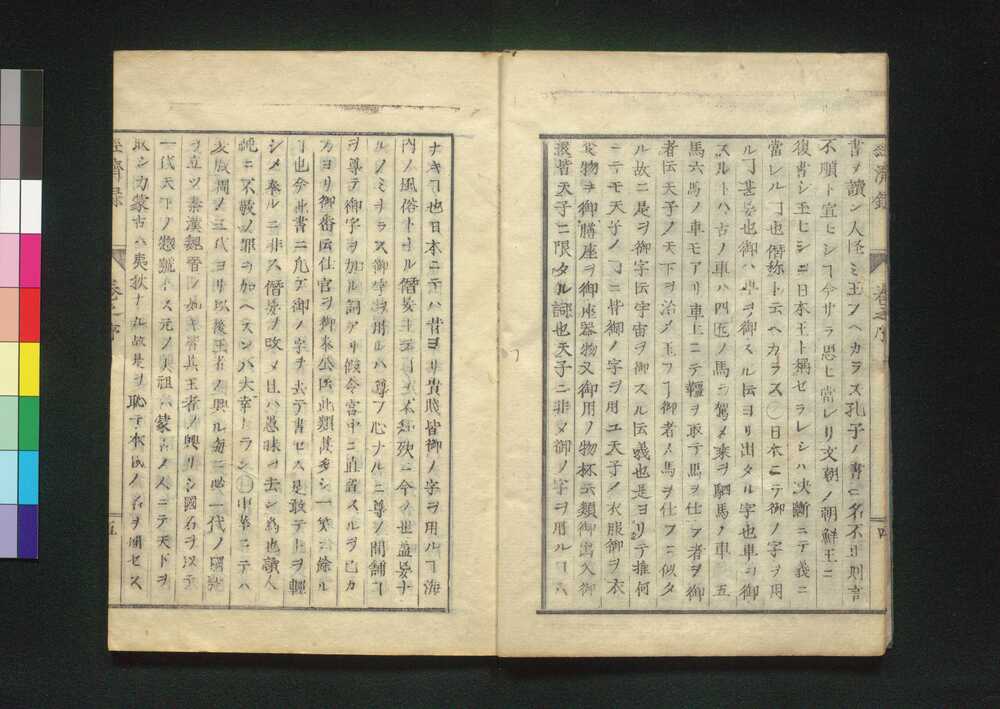 經濟録 巻之序 四
書ヲ讀ン人怪ミ玉フヘカラス孔子ノ書ニ名不正則言
不順ト宣ヒシ丁今サラ思ヒ當レリ文朝ノ朝鮮王ニ
復書シ玉ヒシニ日本王ト稱セラレシハ决斷ニテ義ニ
當レル丁也僭称ト云ヘカラス○日本ニテ御ノ字ヲ用
ル丁甚妄也御ハ車ヲ御スル伝ヨリ出タル字也車ヲ御
スルトハ古ノ車ハ四匹ノ馬ヲ駕メ乘ヲ駟馬ノ車 五
馬六馬ノ車モアリ車上ニテ轡ヲ取テ馬ヲ仕フ者ヲ御
者伝天子ノ天下ヲ治メ玉フ丁御者ノ馬ヲ仕フニ似タ
ル故ニ是ヲ御字伝宇宙ヲ御スル伝義也是ヨリテ推何
ニテモ天子ノ丁ニ皆御ノ字ヲ用ユ天子ノ衣服御ヲ衣
食物ヲ御膳座ヲ御座器物又御用ノ物杯云類御幸入御
還皆天子ニ限タル詞也天子ニ非メ御ノ字ヲ用ルコハ
ナキ丁也日本ニテハ昔ヨリ貴賎皆御ノ字ヲ用ル丁海
内ノ風俗トナル僭妄
ルノミナラス御字ヲ用ルハ尊フ心ナルニ尊ノ間舗丁
ヲ尊テ御字ヲ加ル詞アリ假令宮中ニ直置スルヲ己カ
方ヨリ御番伝仕官ヲ御奉公伝此類甚多シ一笑ニ餘ル
丁也今此書ニ凡テ御ノ字ヲ去テ書セス是敢テ上ヲ輕
シメ奉ルニ非ス僭妄ヲ改メ且ハ愚昧ヲ去ン為也讀人
他ニ不敬ノ罪ニ加ヘスンハ大幸トラン○中華ニテハ
夏殷周ノ三代ヨリ以後王者ノ興ル毎ニ必一代ノ國號
ヲ立ツ秦漢魏晋ノ如キ皆其王者ノ興リシ國名ヲ以テ
一代天下ノ惣號トス元ノ其祖ハ蒙古ノ人ニテ天下ヲ
取シカ蒙古ハ夷狄ナル故是ヲ恥テ本國ノ名ヲ用セス
經濟録 巻之序 五